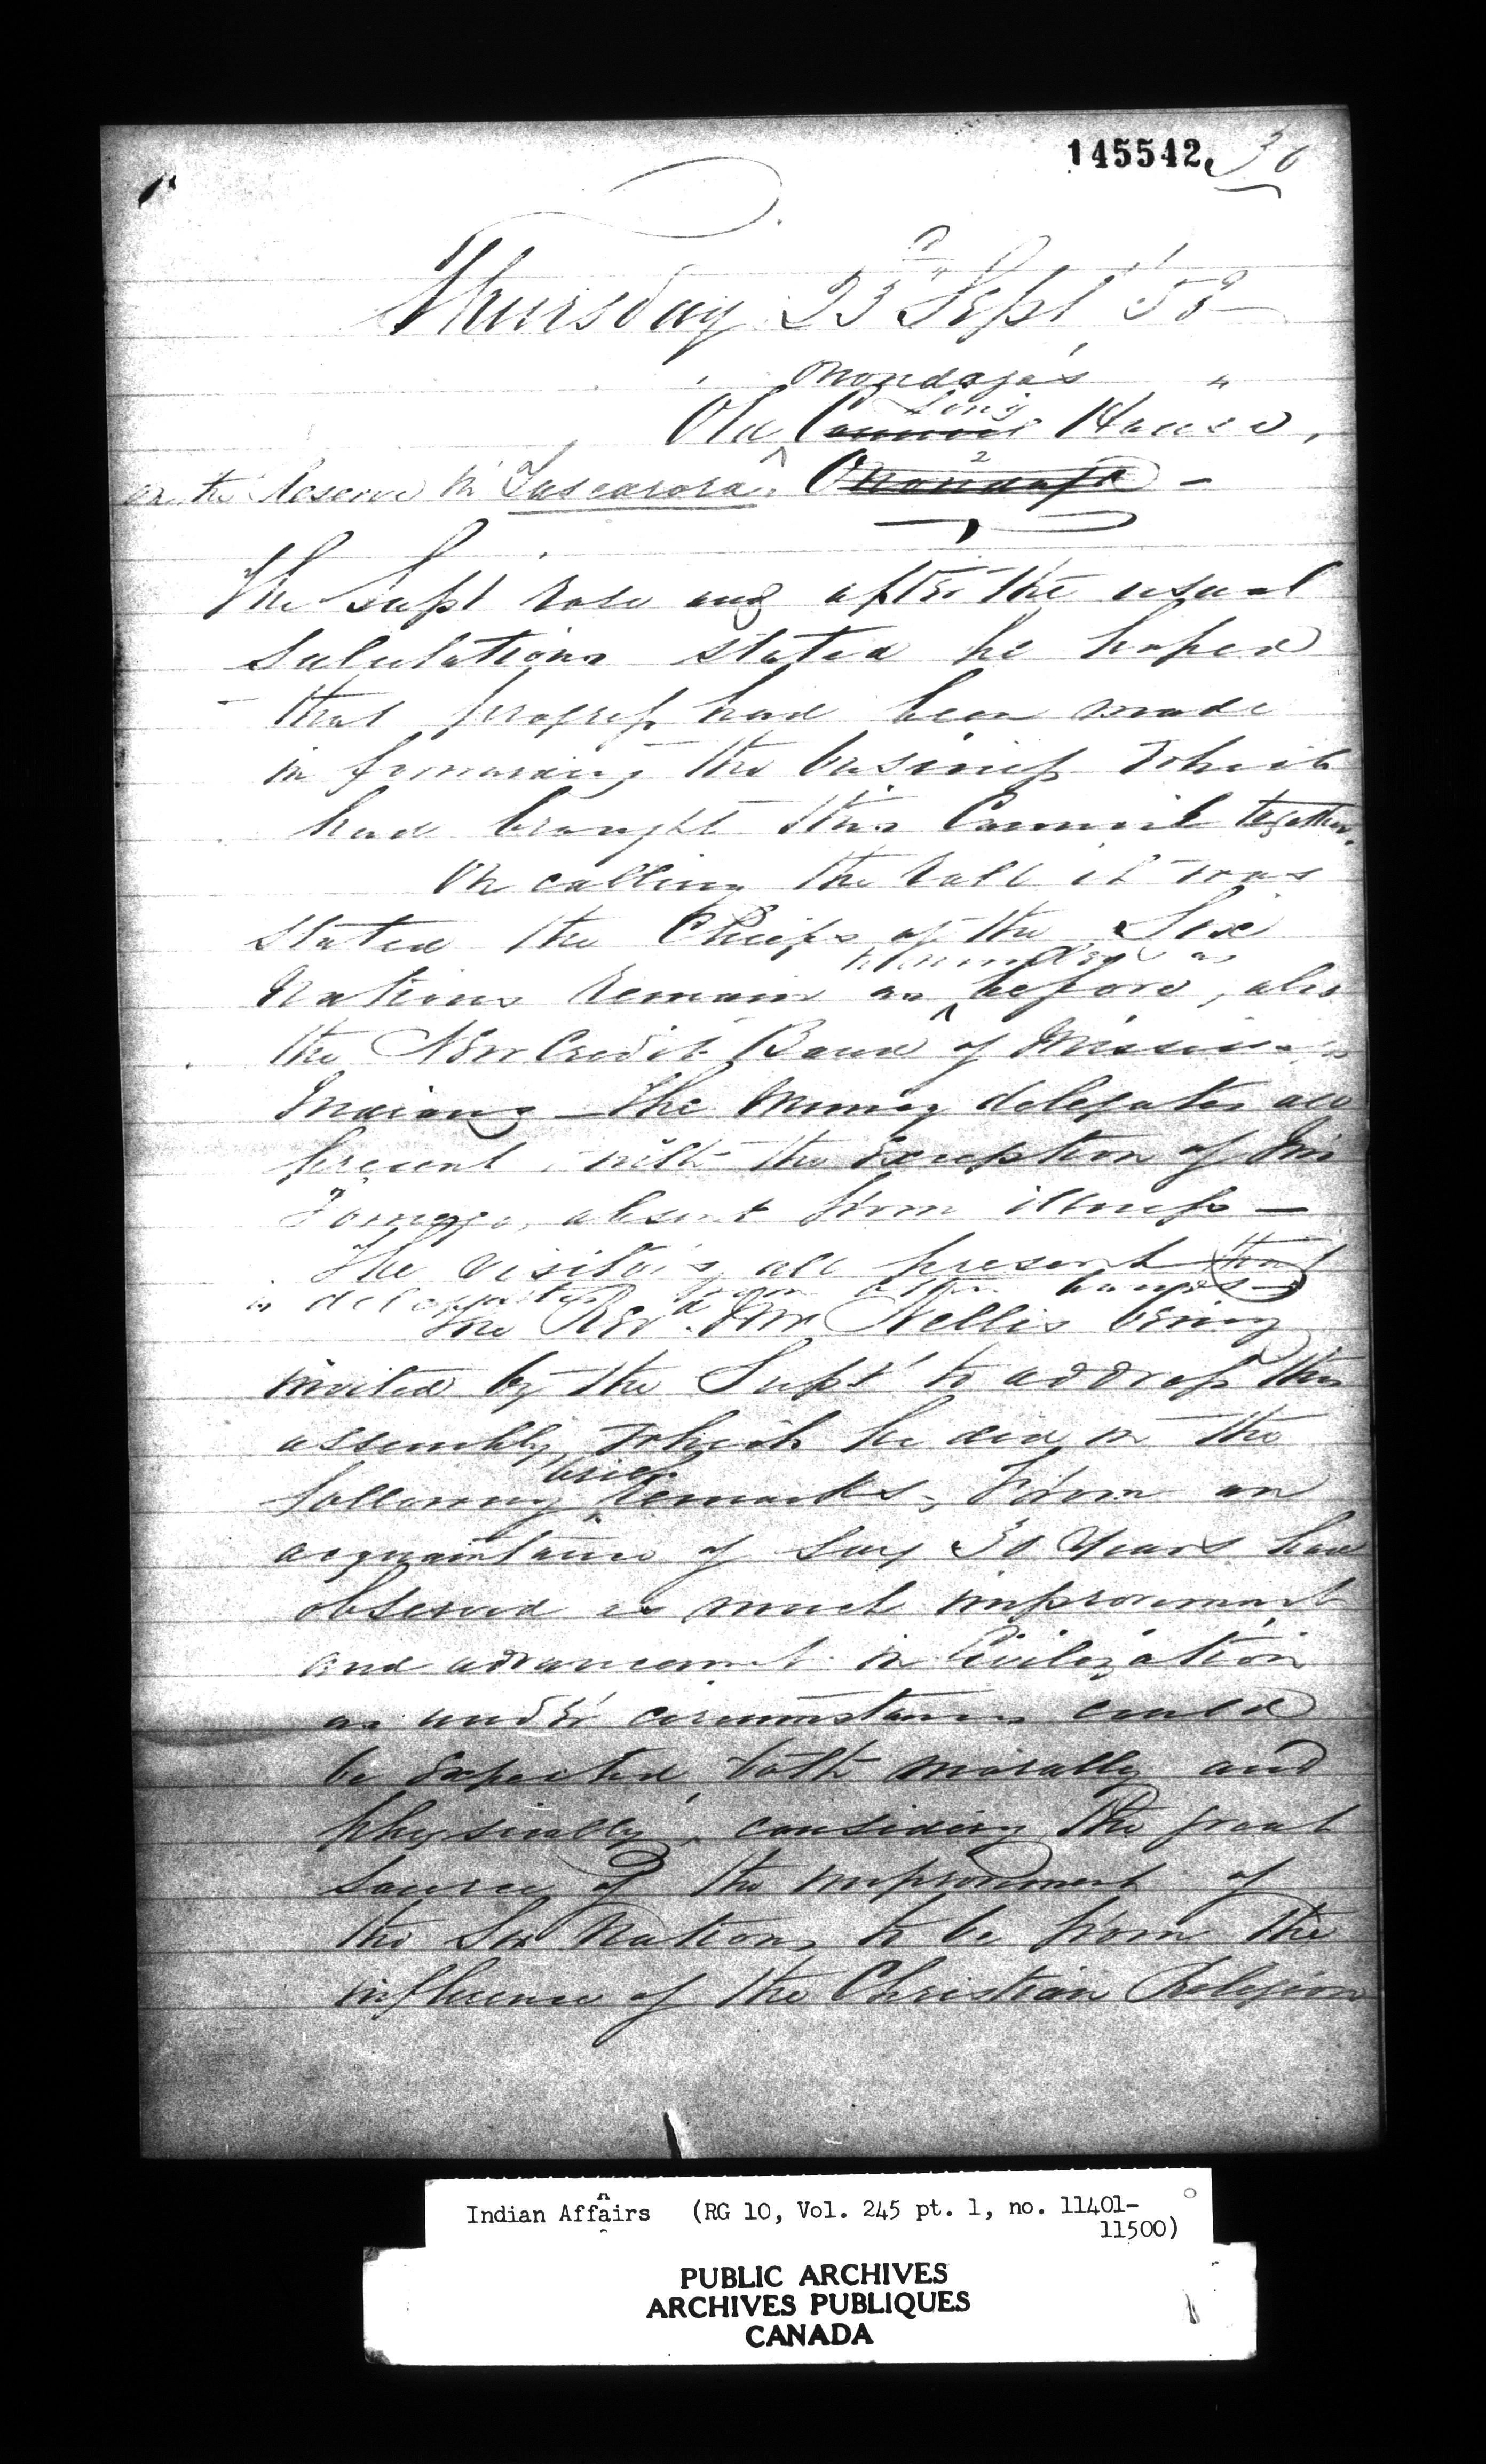 145542. 30
Thursday 23 Sept 58
Onondaga's "
Long
Old Council House,
on the Reserve in Tuscarora. Onondaga -
The Supt rose and after the usual
salutations stated he hoped
that progress had been made
in forwarding the business which
had brought this Council together.
On calling the Roll it was
stated the Chiefs of the Six
Nations remain as before, also
the New Credit Band of
Indians - The Muncey delegates all
present, with the exception of
absent from illness -
The visitors all present
The Revd. Mr Nellis being
invited by the Supt to address the
assembly, which he did in the
brief
following remarks, From an
acquaintance of say 30 Years have
observed as much improvement
and advancement in Civilization
as under circumstances could
be expected, both morally and
physically, considering the great
source of the improvement of
the Six Nations to be from the
influence of the Christian Religion
Indian Affairs (RG 10, Vol. 245 pt. 1, no. 11401-
11500)
PUBLIC ARCHIVES
ARCHIVES PUBLIQUES
CANADA